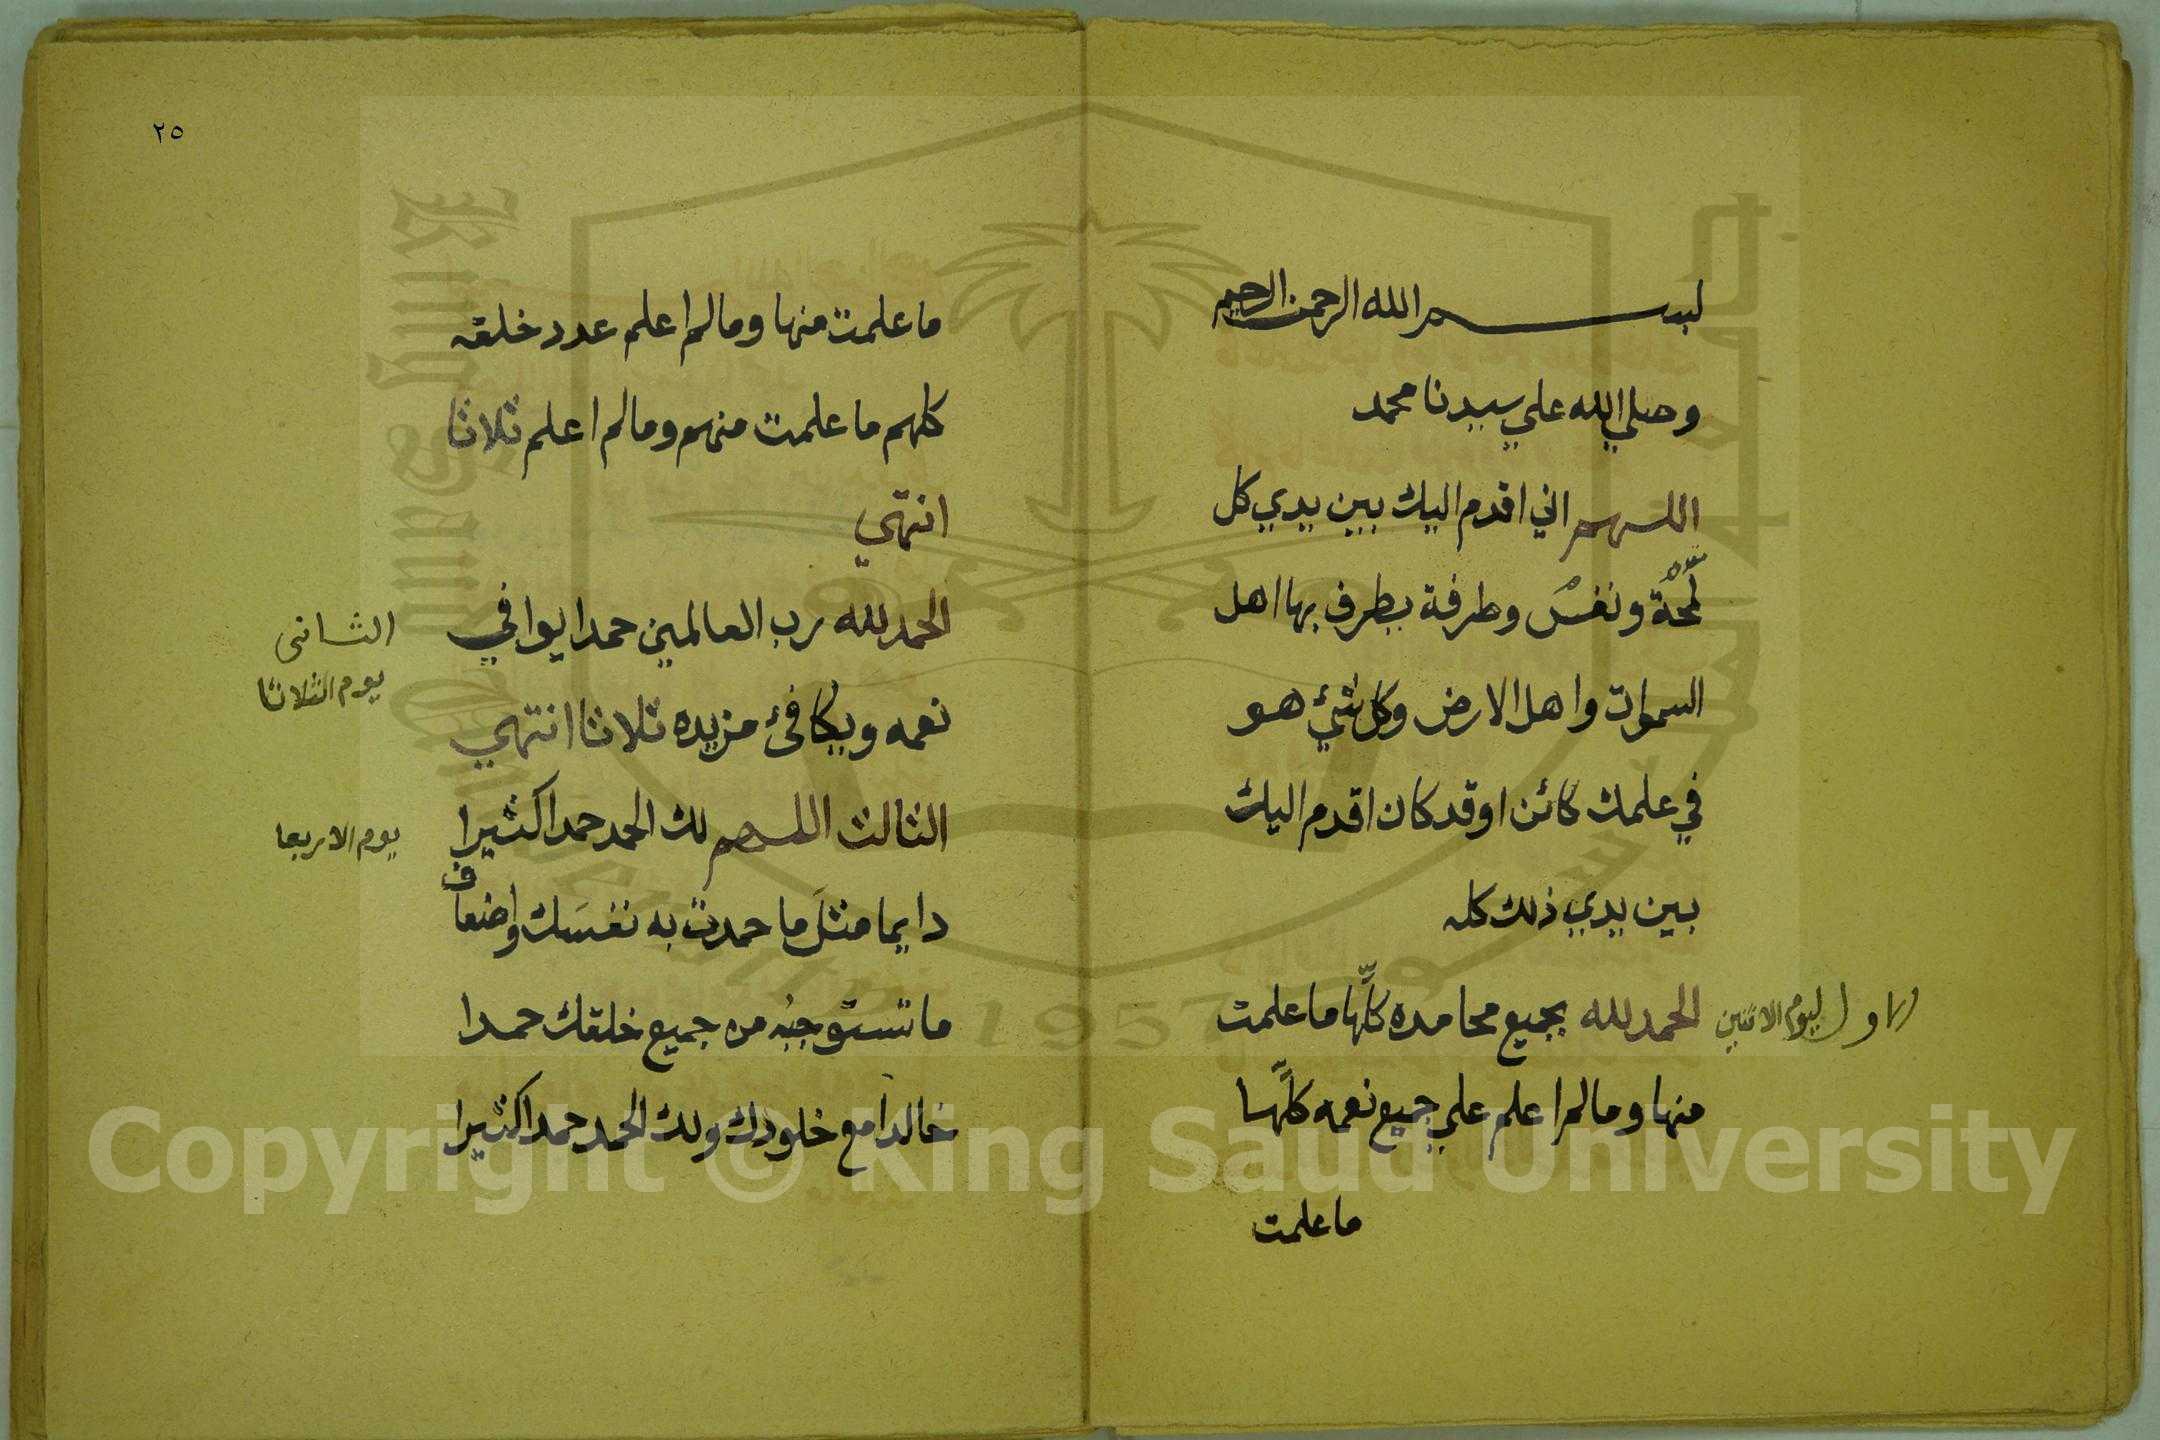 بسم الله الرحمن الرحيم
وصلي الله علي سيدنا محمد
اللهم اني اقدم اليك بين يدي كل
لمحة ونفس وطرفة يطرف بها اهل
السموات واهل الارض وكل شيئ هو
في علمك كائن او قد كان اقدم اليك
بين يدي ذلك كله
الاول ليوم الاثنين
الحمد لله بجميع محامده كلّها ما علمت
منها وما لم اعلم علي جميع نعمه كلّها
ما علمت
٢٥
ما علمت منها وما لم اعلم عدد خلقه
كلهم ما علمت منهم وما لم اعلم ثلاثا
انتهي
الحمد لله رب العالمين حمدا يوافي
الثانى
يوم الثلاثا
نعمه ويكافئ مزيده ثلاثا انتهي
الثالث اللهم لك الحمد حمدا كثيرا
يوم الاربعا
دايما مثلَ ما حمدت به نفسَك واضعاف
ما تستوجبُه من جميع خلقك حمدا
خالدا مع خلودك ولك الحمد حمدا كثيرا
King Saud University
1957
Copyright © King Saud University